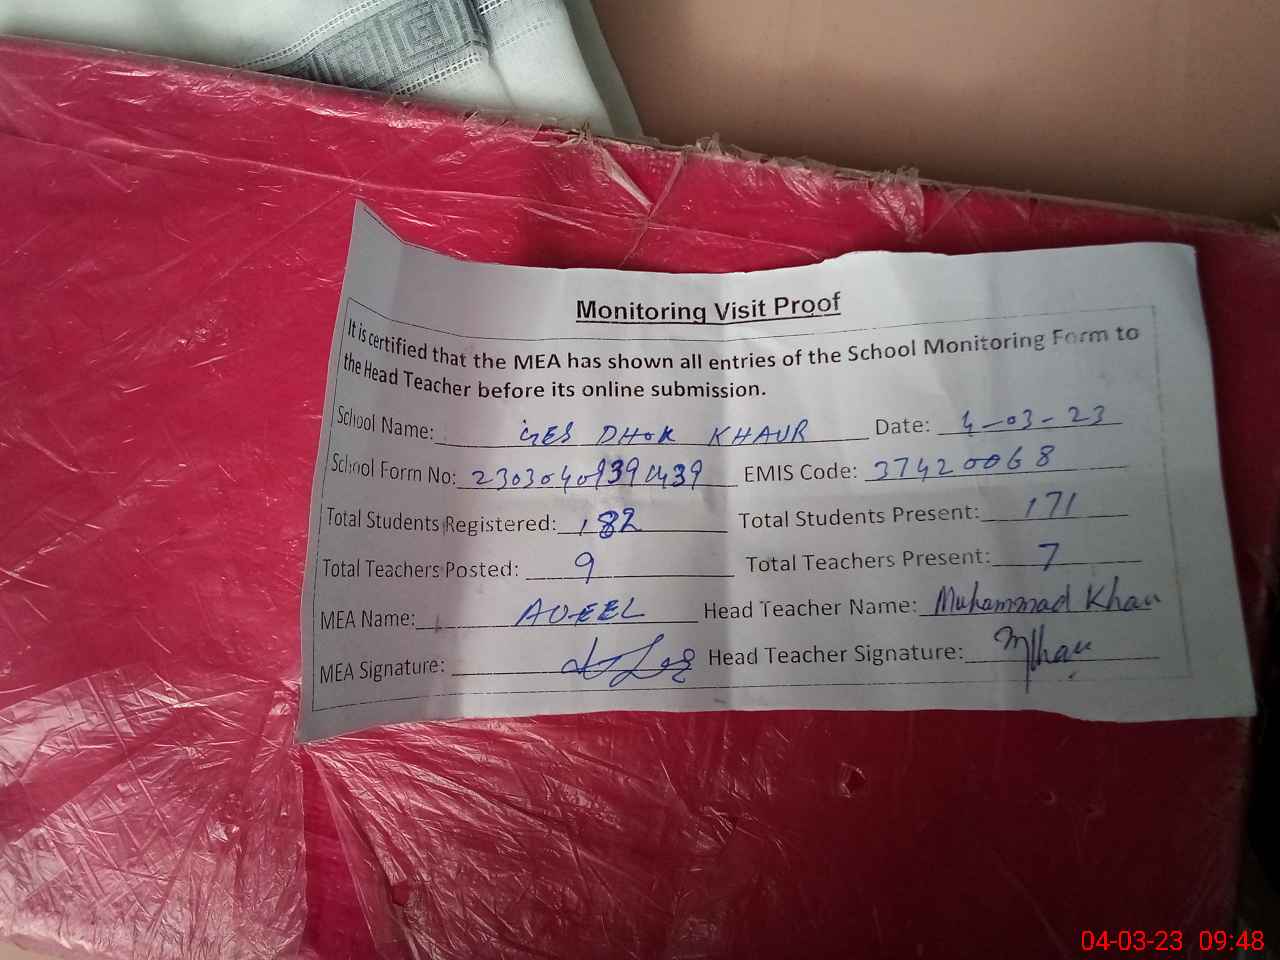 Monitoring Visit Proof
It is certified that the MEA has shown all entries of the School Monitoring Form to
the Head Teacher before its online submission.
School Name: GES DHOK KHAUR Date: 4-03-23
School Form No: EMIS Code: 37420068
Total Students Registered: 182 Total Students Present: 171
Total Teachers Posted: 9 Total Teachers Present: 7
MEA Name: Head Teacher Name: Muhammad Khan
MEA Signature: Head Teacher Signature: MKhan
04-03-23 09:48